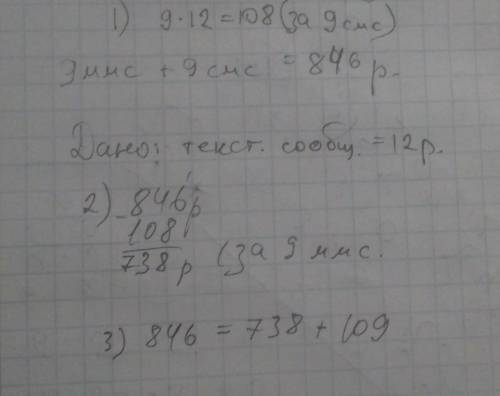 1) 9·12=108 (за 9 смс)
9 ммс + 9 смс = 846 р.
Дано: текст. сообщ. = 12 р.
2) -846р
108
738 р (за 9 ммс.
3) 846 = 738 + 109